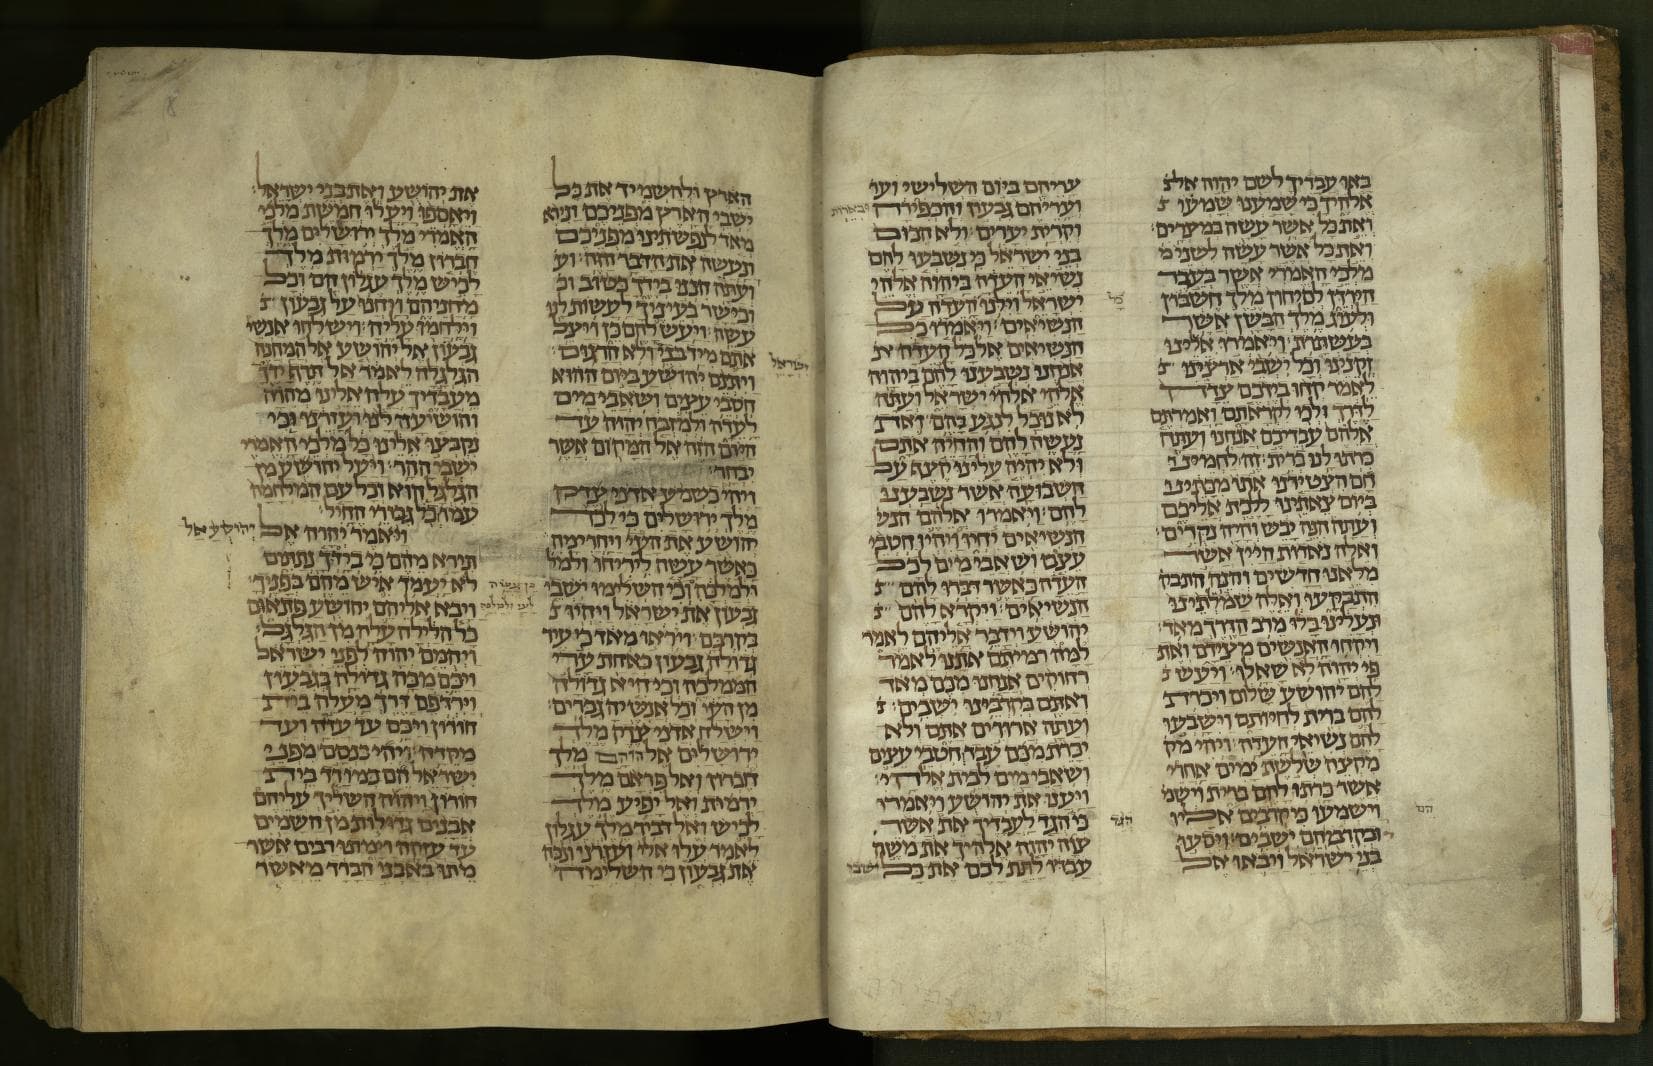 באו עבדיך לשם יהוה אל
אלהיך כי שמענו שמעו
ואת כל אשר עשה במצרים׃
ואת כל אשר עשה לשני מ
מלכי האמרי אשר בעבר
הירדן לסיחון מלך חשבון
ולעוג מלך הבשן אשר
בעשתרות׃ ויאמרו אלינו
זקנינו וכל ישבי ארצינו
לאמר קחו בידכם צדה
לדרך ולכו לקראתם ואמרתם
אלהם עבדיכם אנחנו ועתה
כרתו לנו ברית׃ זה לחמינו
חם הצטידנו אתו מבתינו
ביום צאתינו ללכת אליכם
ועתה הנה יבש והיה נקדים׃
ואלה נאדות היין אשר
מלאנו חדשים והנה התבק
התבקעו ואלה שמלתינו
ונעלינו בלו מרב הדרך מאד׃
ויקחו האנשים מצידם ואת
פי יהוה לא שאלו׃ ויעש
להם יהושע שלום ויכרת
להם ברית לחיותם וישבעו
להם נשיאי העדה׃ ויהי מק
מקצה שלשת ימים אחרי
אשר כרתו להם ברית וישמ
וישמעו כי קרבים אליו
ובקרבו הם ישבים׃ ויסעו
בני ישראל ויבאו אל
עריהם ביום השלישי וער
ועריהם גבעון והכפירה
ובארות
וקרית יערים׃ ולא הכום
בני ישראל כי נשבעו להם
נשיאי העדה ביהוה אלהי
ישראל וילנו העדה על
כל
הנשיאים׃ ויאמרו כל
הנשיאים אל כל העדה
אנחנו נשבענו להם ביהוה
אלהי ישראל ועתה
לא נוכל לנגע בהם׃ זאת
נעשה להם והחיה אתם
ולא יהיה עלינו קצף על
השבועה אשר נשבענו
להם׃ ויאמרו אלהם הנש
הנשיאים יחיו ויהיו חטבי
עצים ושאבי מים לכל
העדה כאשר דברו להם
הנשיאים׃ ויקרא להם
יהושע וידבר אליהם לאמר
למה רמיתם אתנו לאמר
רחוקים אנחנו מכם מאד
ואתם בקרבינו ישבים׃
ועתה ארורים אתם ולא
יכרת מכם עבד חטבי עצים
ושאבי מים לבית אלהי׃
ויענו את יהושע ויאמרו
כי הגד לעבדיך את אשר
הגד
צוה יהוה אלהיך את משה
עבדו לתת לכם את כל
ישבי
הארץ ולהשמיד את כל
ישבי הארץ מפניכם ונירא
מאד לנפשתינו מפניכם
ונעשה את הדבר הזה׃ וע
ועתה הננו בידך כטוב וכ
וכישר בעיניך לעשות לנו
עשה׃ ויעש להם כן ויצל
אתם מיד בני ולא הרגום׃
ישראל
ויתנם יהושע ביום ההוא
חטבי עצים ושאבי מים
לעדה ולמזבח יהוה עד
היום הזה אל המקום אשר
יבחר׃
ויהי כשמע אדני צדק
מלך ירושלים כי לכד
יהושע את העי ויחרימה
כאשר עשה ליריחו ולמל
ולמלכה וכי השלימו ישבי
גבעון את ישראל ויהיו
בקרבם׃ ויראו מאד כי עיר
גדולה גבעון כאחת ערי
הממלכה וכי היא גדולה
מן העי וכל אנשיה גברים׃
וישלח אדני צדק מלך
ירושלים אל הוהם מלך
חברון ואל פראם מלך
ירמות ואל יפיע מלך
לכיש ואל דביר מלך עגלון
לאמר׃ עלו אלי ועזרני ונכה
את גבעון כי השלימה
את יהושע ואת בני ישראל׃
ויאספו ויעלו חמשת מלכי
האמרי מלך ירושלים מלך
חברון מלך ירמות מלך
לכיש מלך עגלון הם וכל
מחניהם ויחנו על גבעון
וילחמו עליה׃ וישלחו אנשי
גבעון אל יהושע אל המחנה
הגלגלה לאמר אל תרף ידך
מעבדיך עלה אלינו מהרה
והושיעה לנו ועזרנו כי
נקבצו אלינו כל מלכי האמרי
ישבי ההר׃ ויעל יהושע מן
הגלגל הוא וכל עם המלחמה
עמו כל גבורי החיל׃
ויאמר יהוה אל
יהושע אל
תירא מהם כי בידך נתתים
לא יעמד איש מהם בפניך׃
ויבא אליהם יהושע פתאום
כל הלילה עלה מן הגלגל׃
ויהמם יהוה לפני ישראל
ויכם מכה גדולה בגבעון
וירדפם דרך מעלה בית
חורון ויכם עד עזקה ועד
מקדה׃ ויהי בנסם מפני
ישראל הם במורד בית
חורון ויהוה השליך עליהם
אבנים גדולות מן השמים
עד עזקה וימתו רבים אשר
מתו באבני הברד מאשר